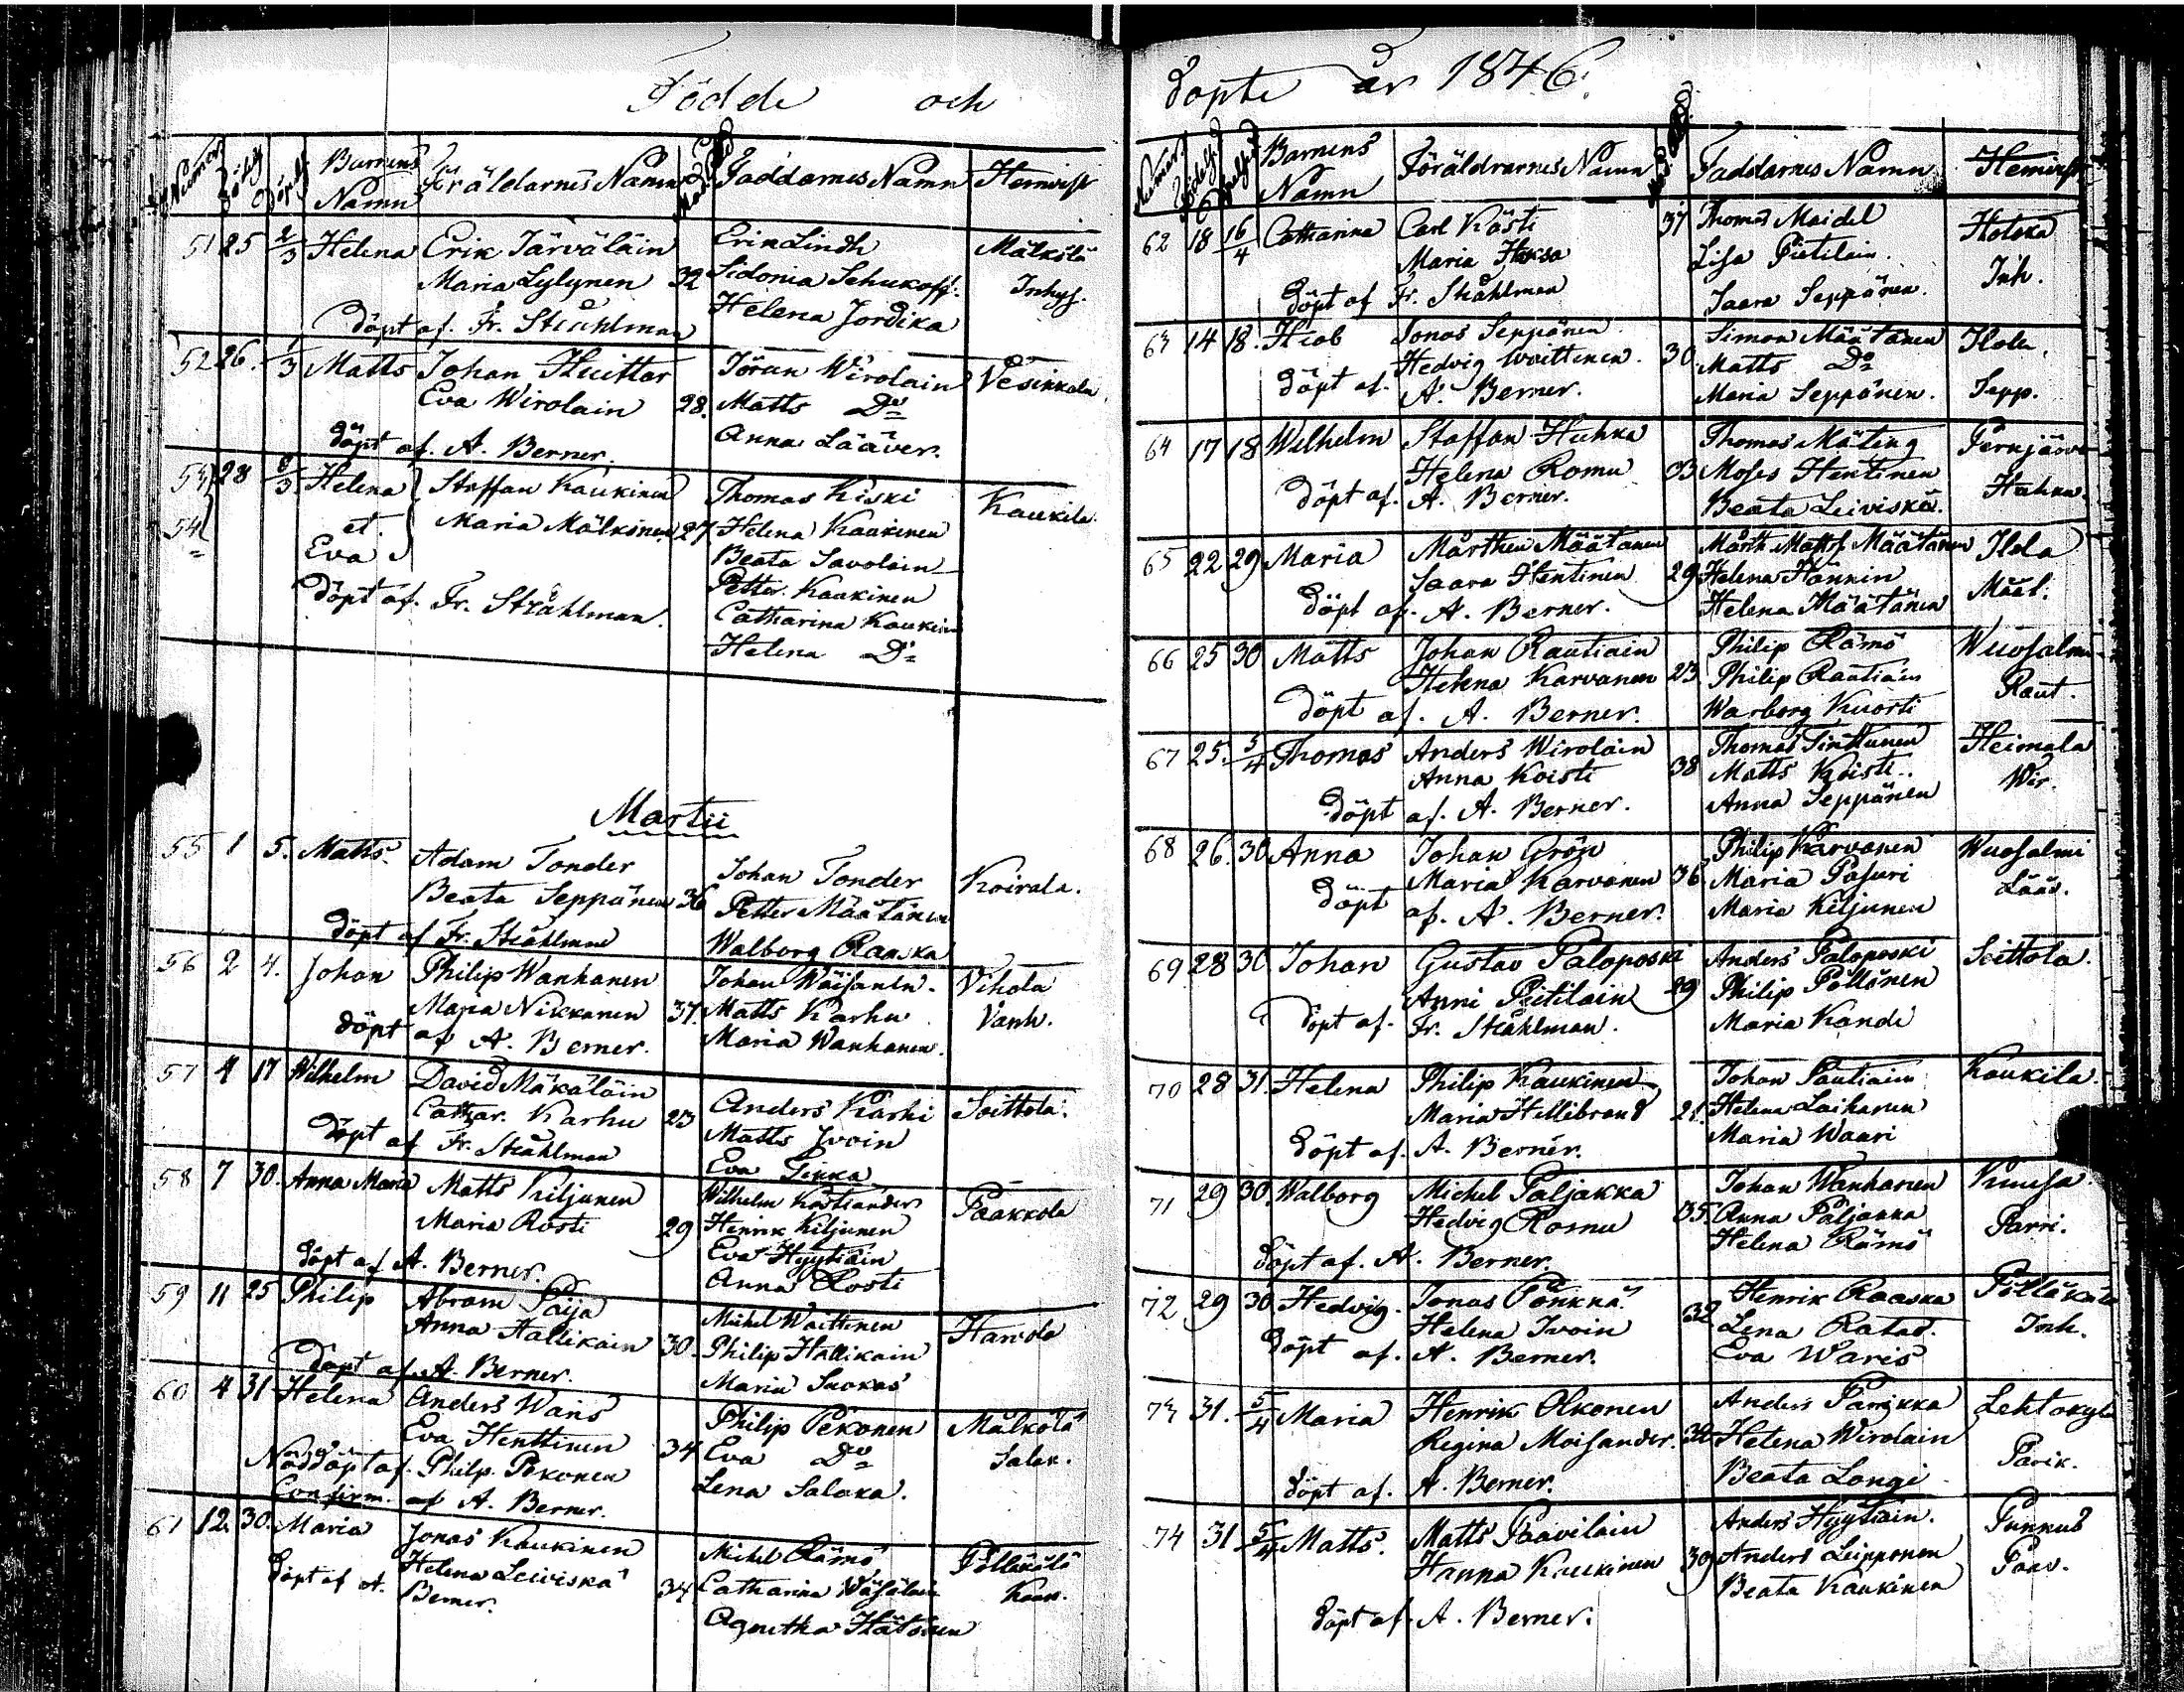 Födde och
Barnens Namn Föräldarnes Namn Faddarnes Namn Hemvist
51 25 2/3 Helena Erik Järväläin Erik Lindh Mälkölä
Maria Lylynen 32 Sidonia Schukoff. Inhys.
Döpt af. Fr. Stråhlman Helena Jordika
52 26. 1/3 Matts Johan Huittar Jöran Wirolain Vesikkala
Eva Wirolain 28. Matts Do
Döpt af. A. Berner. Anna Lääver.
53 28 8/3 Helena Staffan Kaukinen Thomas Kiski Kaukila.
54 et. Maria Mälkönen 27 Helena Kaukinen
Eva Beata Savolain
Petter Kaukinen
Döpt af. Fr. Stråhlman. Catharina Kaukinen
Helena Do
Martii
55 1 5. Matts. Adam Tonder Johan Tonder Koirala.
Beata Seppänen 36 Petter Määtänen
Döpt af Fr. Stråhlman Walborg Raaska
56 2 4. Johan Philip Wanhanen Johan Wäisanen. Vihola
Maria Nikkanen 37. Matts Karhu Vanh.
Döpt af A. Berner. Maria Wanhanen.
57 4 17 Wilhelm David Mäkäläin Anders Karhi Soittola.
Cathar. Karhu 23 Matts Ivoin
Döpt af Fr. Stråhlman Eva Sikka
58 7 30. Anna Maria Matts Kiljunen Wilhelm Paakkola
Maria Rosti 29 Henrik Kiljunen
Eva Hyytiäin
Döpt af A. Berner. Anna Rosti
59 11 25 Philip Abram Paija Michel Waittinen
Anna Hallikain 30. Philip Hallikain
Döpt af. A. Berner. Maria Suokas
60 4 31 Helena Anders Waris Philip Pekonen Mälkölä
Eva Henttinen 34 Eva Do Salak.
Nöddöpt af. Philp. Pekonen Lena Salaka.
Confirm. af A. Berner.
61 12. 30. Maria Jonas Kaukinen Michel Rämö
Helena Leiviskä 34 Catharina
Döpt af A. Berner. Agnetha Hätönen
Döpte år 1846.
Barnens Namn Föräldrarnes Namn Faddarnes Namn Hemvist
62 18 16/4 Catharina Carl Kästi 37 Thomas Maidel Hotoka
Maria Haksa Lisa Pietilain. Inh.
Döpt af Fr. Stråhlman Saara Seppänen.
63 14 18. Hiob Jonas Seppänen Simon Määtänen Ilola.
Hedvig Waittinen. 30. Matts Do
Döpt af. A. Berner. Maria Seppänen. Sepp.
64 17 18 Wilhelm Staffan Huhka Thomas Mäting Pernjärvi
Helena Romu 33 Moses Henttinen Huhka.
Döpt af. A. Berner. Beata Leiviskä.
65 22 29 Maria Mårthen Määtanen Mårth. Mattss. Määtänen Ilola
Saara Hentinen 29 Helena Hännin Määt.
Döpt af. A. Berner. Helena Määtänen
66 25 30 Matts Johan Rautiain Philip Rämö Wuosalmi
Helena Karvanen 23. Philip Rautiain Raut.
Döpt af. A. Berner. Warborg Kuosti
67 25. 5/4 Thomas Anders Wirolain Thomas Sinttunen Heimala
Anna Koisti 38 Matts Koisti. Wir.
Döpt af. A. Berner. Anna Seppänen
68 26. 30 Anna Johan Grön Philip Karvanen Wuosalmi
Maria Karvanen 36. Maria Pasuri Lääv.
Döpt af. A. Berner. Maria Kiljunen
69 28 30 Johan Gustav Paloposki Anders Paloposki Soittola.
Anni Pietilain 29 Philip Pöllönen
Döpt af. Fr. Stråhlman. Maria Kande
70 28 31. Helena Philip Kaukinen Johan Pautiain Kaukila.
Maria Hillibrand 21. Helena Laihanen
Döpt af. A. Berner. Maria Waari
71 29 30. Walborg Michel Paljakka Johan Wanhanen Kuusa
Hedvig Romu 35. Anna Paljakka Parri.
Döpt af. A. Berner. Helena Rämö
72 29 30 Hedvig. Jonas Pönkkä. Henrik Raaska
Helena Ivoin 32 Lena Ratas. Inh.
Döpt af. A. Berner. Eva Waris
73 31. 5/4 Maria Henrik Olkonen Anders Parikka Lehtokylä
Regina Moisander. 30 Helena Wirolain Parik.
Döpt af. A. Berner. Beata Longi
74 31 5/4 Matts. Matts Paavilain Anders Hyytiain. Punnus
Hanna Kaukinen 39 Anders Leipponen Paav.
Döpt af. A. Berner. Beata Kaukinen